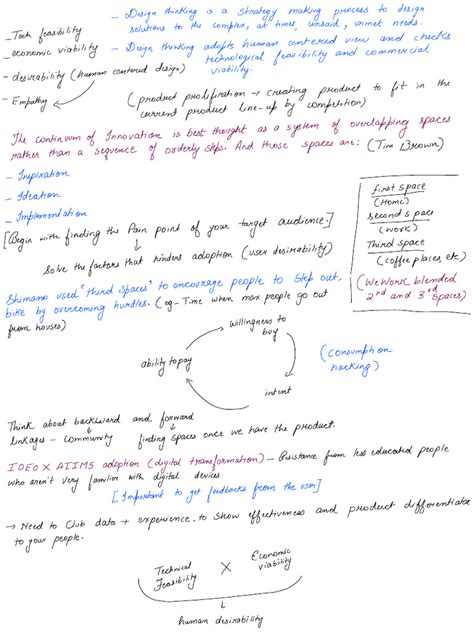 - Tech feasibility
- economic viability
- desirability (human centered design)
- Empathy
- Design thinking is a strategy making process to design
solutions to the complex, at times, unsaid, unmet needs.
- Design thinking adopts human centered view and checks
technological feasibility and commercial
viability.
(product prolifiration → creating product to fit in the
current product line-up by competition)
The continuum of Innovation is best thought as a system of overlapping spaces
rather than a sequence of orderly steps. And those spaces are: (Tim Brown)
- Inspiration
- Ideation
- Implementation
[Begin with finding the Pain point of your target audience.]
Solve the factors that hinders adoption (user desirability)
first space
(Home)
second space
(work)
Third space
(coffee places, etc)
(WeWork blended
2nd and 3rd spaces)
Shimano used "third spaces" to encourage people to step out,
bike by overcoming hurdles. (eg - Time when max people go out
from houses)
willingness to
buy
ability to pay
intent
(consumption
hacking)
Think about backward and forward
linkages - community finding spaces once we have the product.
IDEO X AIIMS adoption (digital transformation) - Resistance from less educated people
who aren't very familiar with digital devices
[Important to get feedbacks from the user]
→ Need to Club data + experience. to show effectiveness and product differentiator
to your people.
Technical
Feasibility
X
Economic
viability
human desirability